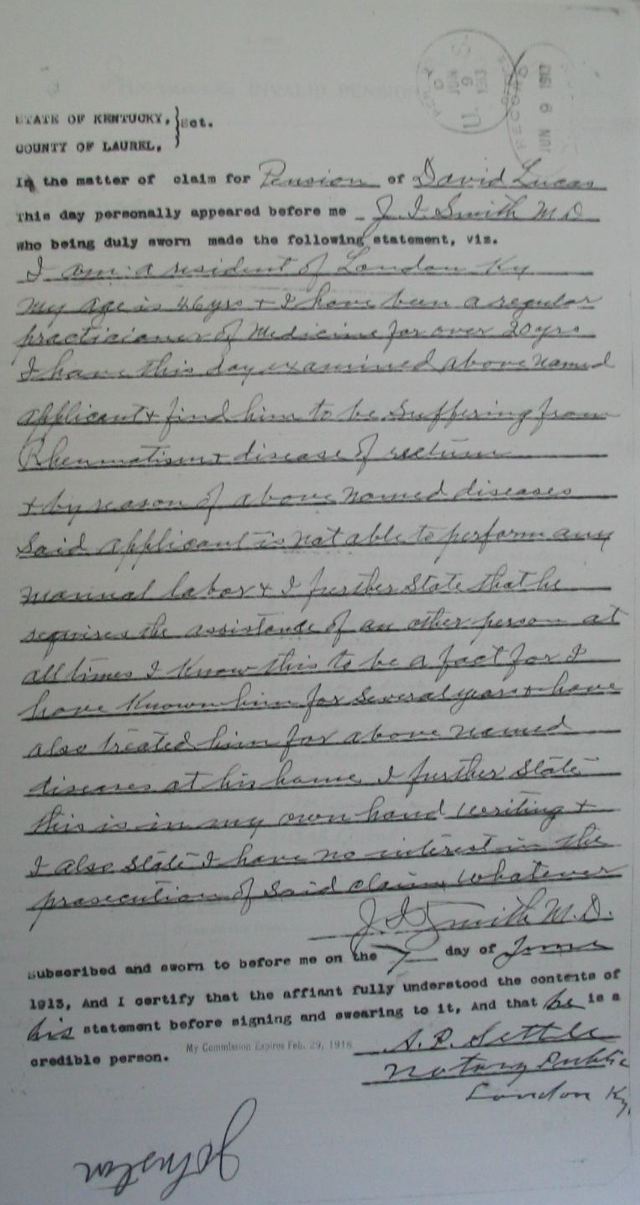 U. S.
JUN 9 1913
RECORD
JUN 9 1913
STATE OF KENTUCKY, } Sct.
COUNTY OF LAUREL,
In the matter of claim for Pension of David Lucas
This day personally appeared before me J. I. Smith M D
who being duly sworn made the following statement, viz.
I am a resident of London Ky
my age is 46 yrs + I have been a regular
practicianer of Medicine for over 20 yrs
I have this day examined above named
applicant + find him to be Suffering from
Rheumatism + disease of rectum
+ by reason of above named diseases
Said applicant is not able to perform any
manual labor + I further State that he
requires the assistance of an other person at
all times I Know this to be a fact for I
have Known him for Several years + have
also treated him for above named
diseases at his home. I further State
this is in my own hand writing +
I also State I have no interest in the
prosecution of Said claim whatever
J. I. Smith M. D.
Subscribed and sworn to before me on the 7 day of June
1913, And I certify that the affiant fully understood the contents of
his statement before signing and swearing to it, And that he is a
credible person. My Commission Expires Feb. 29, 1916 S. P. Settle
Notary Public
London Ky.
Johnston